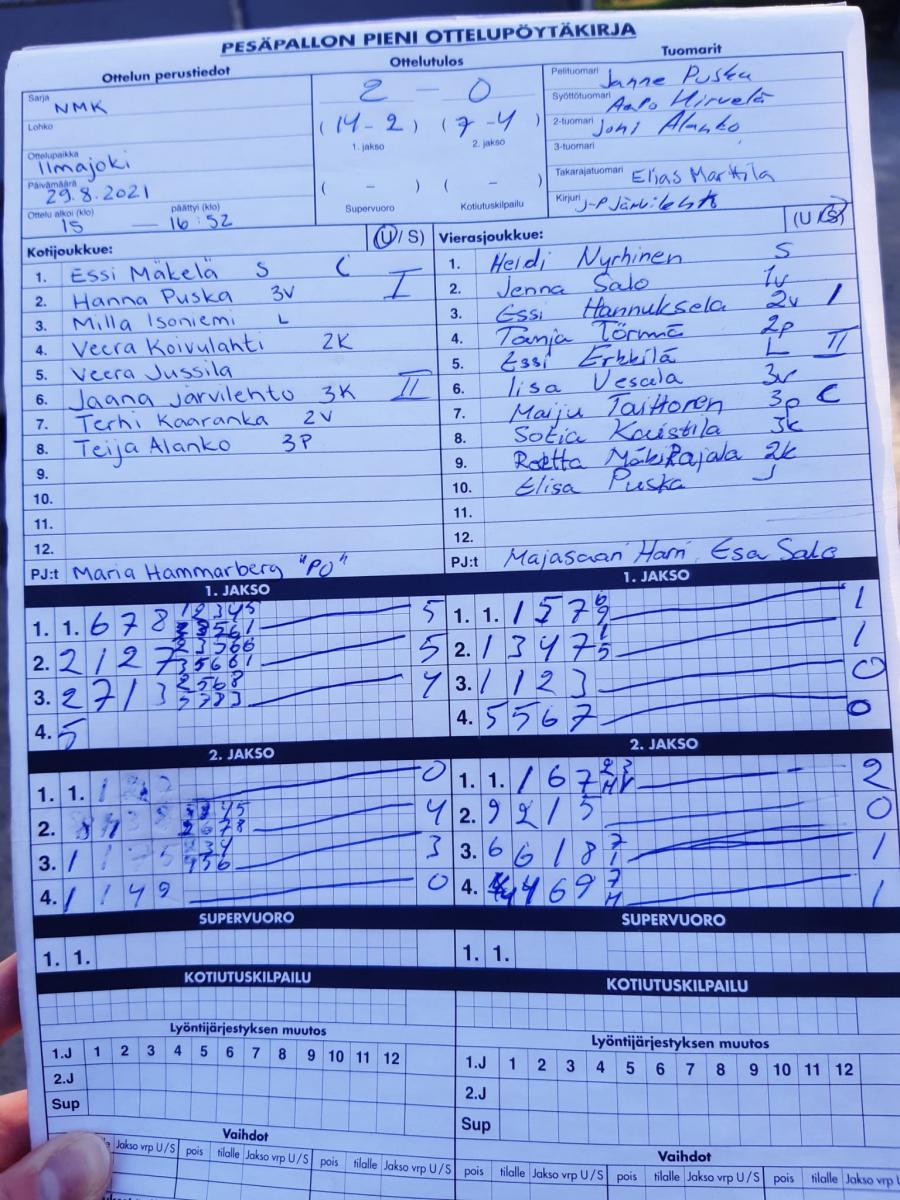 PESÄPALLON PIENI OTTELUPÖYTÄKIRJA
Ottelun perustiedot
Sarja NMK
Lohko
Ottelupaikka Ilmajoki
Päivämäärä 29.8.2021
Ottelu alkoi (klo) päättyi (klo)
15 — 16:52
Ottelutulos
2 – 0
(14 – 2) (7 – 4)
1. jakso 2. jakso
( – ) ( – )
Supervuoro Kotiutuskilpailu
Tuomarit
Pelituomari Janne Puska
Syöttötuomari Aapo Hirvelä
2-tuomari Joni Alanko
3-tuomari
Takarajatuomari Elias Marttila
Kirjuri J-P Järvilehto
Kotijoukkue: (U/S)
1. Essi Mäkelä S C
2. Hanna Puska 3V I
3. Milla Isoniemi L
4. Veera Koivulahti 2K
5. Veera Jussila
6. Jaana Järvilehto 3K II
7. Terhi Kaaranka 2V
8. Teija Alanko 3P
9.
10.
11.
12.
PJ:t Maria Hammarberg "PO"
Vierasjoukkue: (U/S)
1. Heidi Nyrhinen S
2. Jenna Salo 1v
3. Essi Hannuksela 2v I
4. Tanja Törmä 2p
5. Essi Erkkilä L II
6. Iisa Vesala 3v
7. Maiju Taittonen 3p C
8. Sofia Kaistila 3k
9. Reetta MäkiRajala 2k
10. Elisa Puska J
11.
12.
PJ:t Majasaari Harri Esa Salo
1. JAKSO
1. 1. 6 7 8 5
2. 2 1 2 7 5
3. 2 7 1 3 4
4. 5
2. JAKSO
1. 1. 1 0
2. 4
3. 1 1 3
4. 1 1 4 9 0
SUPERVUORO
1. 1.
KOTIUTUSKILPAILU
Lyöntijärjestyksen muutos
1.J 1 2 3 4 5 6 7 8 9 10 11 12
2.J
Sup
Vaihdot
Jakso vrp U/S pois tilalle Jakso vrp U/S pois tilalle Jakso vrp U/S
1. JAKSO
1. 1. 1 5 7 6 9 1
2. 1 3 4 7 1 5 1
3. 1 1 2 3 0
4. 5 5 6 7 0
2. JAKSO
1. 1. 1 6 7 2 3 2
2. 9 2 1 5 0
3. 6 6 1 8 7 1 1
4. 4 4 6 9 7 1
SUPERVUORO
1. 1.
KOTIUTUSKILPAILU
Lyöntijärjestyksen muutos
1.J 1 2 3 4 5 6 7 8 9 10 11 12
2.J
Sup
Vaihdot
pois tilalle Jakso vrp U/S pois tilalle Jakso vrp U/S pois tilalle Jakso